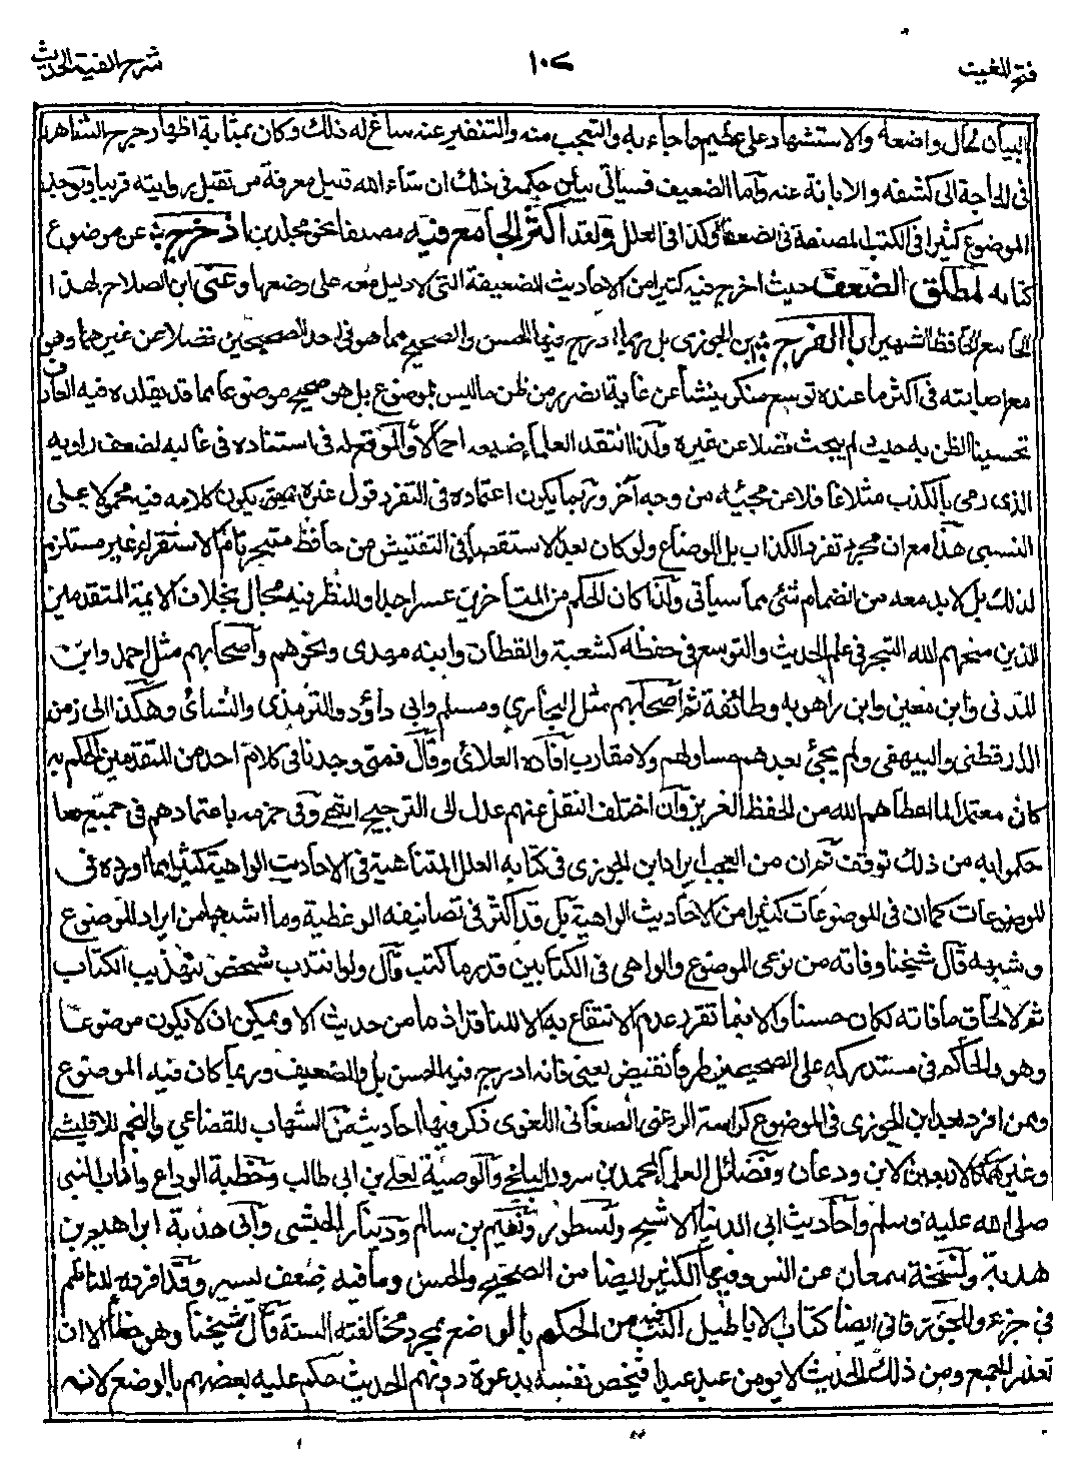 فتح المغيث
١٠٧
شرح الفية الحديث
البيان لحال واضعه والاستشهاد على عظيم ما جاء به والتعجب منه والتنفير عنه ساغ له ذلك وكان بمثابة اظهار جرح الشاهد
فى الحاجة الى كشفه والابانة عنه وأما الضعيف فسيأتى بيان حكمه فى ذلك ان شاء الله قبيل معرفة من تقبل روايته قريبا ويوجد
الموضوع كثيرا فى الكتب المصنفة فى الضعفاء وكذا فى العلل ولقد اكثر الجامع فيه مصنفا نحو مجلدين اذ خرج عن موضوع
كتابه لمطلق الضعف حيث اخرج فيه كثيرا من الاحاديث الضعيفة التى لا دليل معه على وضعها وعنى ابن الصلاح بهذا
الجامع الحافظ الشهير ابا الفرج بن الجوزى بل ربما ادرج فيها الحسن والصحيح مما هو فى احد الصحيحين فضلا عن غيرهما وهو
مع اصابته فى اكثر ما عنده توسع منكر ينشأ عن غاية الضرر من ظن ما ليس بموضوع بل هو صحيح موضوعا مما قد يقلده فيه العارف
تحسينا للظن به حيث لم يبحث فضلا عن غيره ولذا انتقد العلماء صنيعه اجمالا والموقع له فى استناده فى غالبه لضعف راويه
الذى رمى بالكذب مثلا غافلا عن مجيئه من وجه آخر وربما يكون اعتماده فى التفرد قول غيره ممن يكون كلامه فيه محمولا على
النسبى هذا مع ان مجرد تفرد الكذاب بل الوضاع ولو كان بعد الاستقصاء فى التفتيش من حافظ متبحر تام الاستقراء غير مستلزم
لذلك بل لا بد معه من انضمام شئ مما سيأتى ولذا كان الحكم من المتأخرين عسرا جدا وللنظر فيه مجال بخلاف الائمة المتقدمين
الذين منحهم الله التبحر فى علم الحديث والتوسع فى حفظه كشعبة والقطان وابن مهدى ونحوهم واصحابهم مثل احمد وابن
المدينى وابن معين وابن راهويه وطائفة ثم اصحابهم مثل البخارى ومسلم وابى داؤد والترمذى والنسائى وهكذا الى زمن
الدارقطنى والبيهقى ولم يجئ بعدهم مساو لهم ولا مقارب افاده العلائى وقال فمتى وجدنا فى كلام احد من المتقدمين الحكم به
كان معتمدا لما اعطاهم الله من الحفظ الغزير وان اختلف النقل عنهم عدل الى الترجيح انتهى وفى جزمه باعتمادهم فى جميع ما
حكموا به من ذلك توقف ثم ان من العجب ايراد ابن الجوزى فى كتابه العلل المتناهية فى الاحاديث الواهية كثيرا مما اورده فى
الموضوعات كما ان فى الموضوعات كثيرا من الاحاديث الواهية بل قد اكثر فى تصانيفه الوعظية وما اشبهها من ايراد الموضوع
وشبهه قال شيخنا وفاته من نوعى الموضوع والواهى فى الكتابين قدر ما كتب قال ولو انتدب شخص لتهذيب الكتاب
ثم لالحاق ما فاته لكان حسنا والا فما تقرر عدم الانتفاع به الا للناقد اذ ما من حديث الا ويمكن ان لا يكون موضوعا
وهو والحاكم فى مستدركه على الصحيحين طرفا نقيض يعنى فانه ادرج فيه الحسن بل والضعيف وربما كان فيه الموضوع
وممن افرد بعد ابن الجوزى فى الموضوع كراسة الرضى الصغانى اللغوى ذكر فيها احاديث من الشهاب للقضاعى والنجم للاقليشى
وغيرهما كالاربعين لابن ودعان وفضائل العلماء لمحمد بن سرور البلخى والوصية لعلى بن ابى طالب وخطبة الوداع وآداب النبى
صلى الله عليه وسلم واحاديث ابى الدنيا الاشج ونسطور ونعيم بن سالم ودينار الحبشى وابى هدبة ابراهيم بن
هدبة ونسخة سمعان عن انس وفيها الكثير ايضا من الصحيح والحسن وما فيه ضعف يسير وقد افرده الناظم
فى جزء وللجوزقانى ايضا كتاب الاباطيل اكثر فيه من الحكم بالوضع بمجرد مخالفته السنة قال شيخنا وهو خطأ الا ان
تعذر الجمع ومن ذلك الحديث لا يؤمن عبد عبدا فيخص نفسه بدعوة دونهم الحديث حكم عليه بعضهم بالوضع لانه